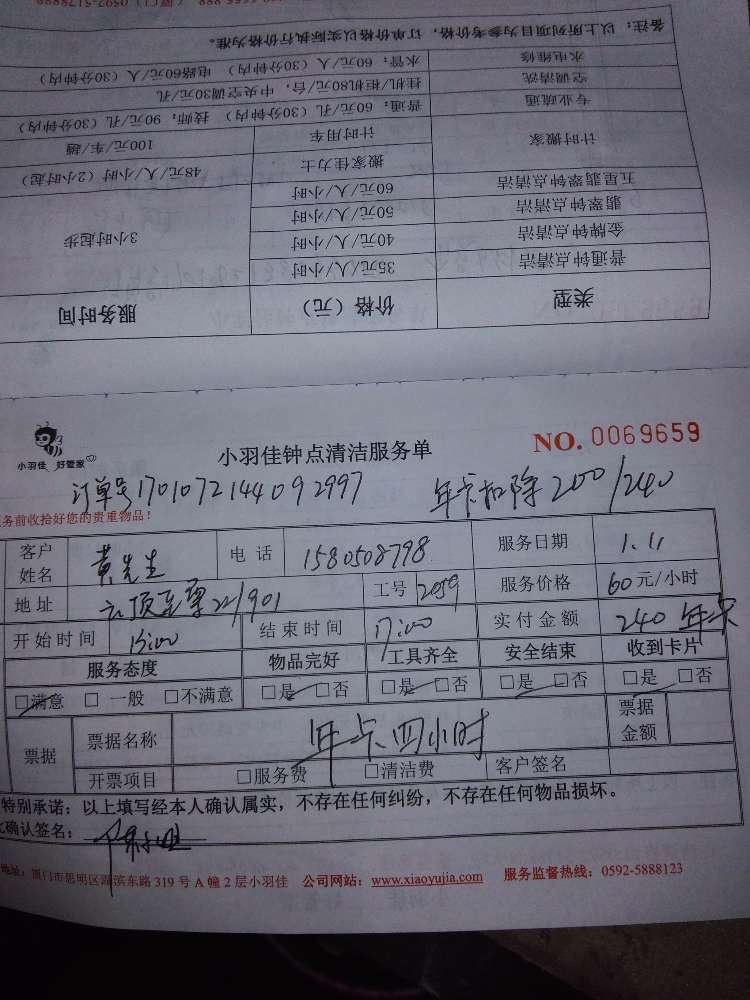 类型 价格（元） 服务时间
普通钟点清洁 35元/人/小时 3小时起步
金牌钟点清洁 40元/人/小时
翡翠钟点清洁 50元/人/小时
五星翡翠钟点清洁 60元/人/小时
计时搬家 搬家佳力士 48元/人/小时（2小时起）
计时用车 100元/车/趟
专业疏通 普通：60元/孔（30分钟内） 技师：90元/孔（30分钟内）
空调清洗 挂机/柜机80元/台，中央空调30元/孔
水电维修 水管：60元/人（30分钟内） 电路60元/人（30分钟内）
备注：以上所列项目为参考价格，订单价格以实际执行价格为准。
小羽佳 好管家
小羽佳钟点清洁服务单
NO. 0069659
订单号1701072144092997 年卡扣除200/240
务前收拾好您的贵重物品！
客户姓名 黄先生 电话 1580508798 服务日期 1.11
地址 云顶至尊22/901 工号 2059 服务价格 60元/小时
开始时间 13:00 结束时间 17:00 实付金额 240 年卡
服务态度 物品完好 工具齐全 安全结束 收到卡片
□满意 □一般 □不满意 □是 □否 □是 □否 □是 □否 □是 □否
票据 票据名称 年卡四小时 票据金额
开票项目 □服务费 □清洁费 客户签名
特别承诺：以上填写经本人确认属实，不存在任何纠纷，不存在任何物品损坏。
确认签名：
地址：厦门市思明区湖滨东路319号A幢2层小羽佳 公司网站：www.xiaoyujia.com 服务监督热线：0592-5888123